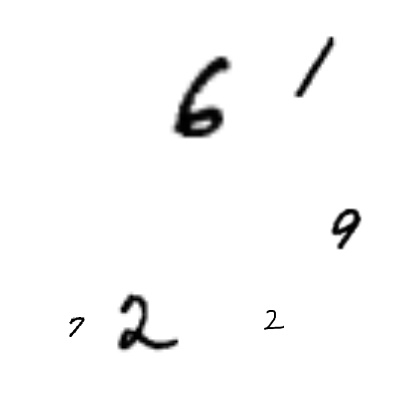 6 1
9
7 2 2